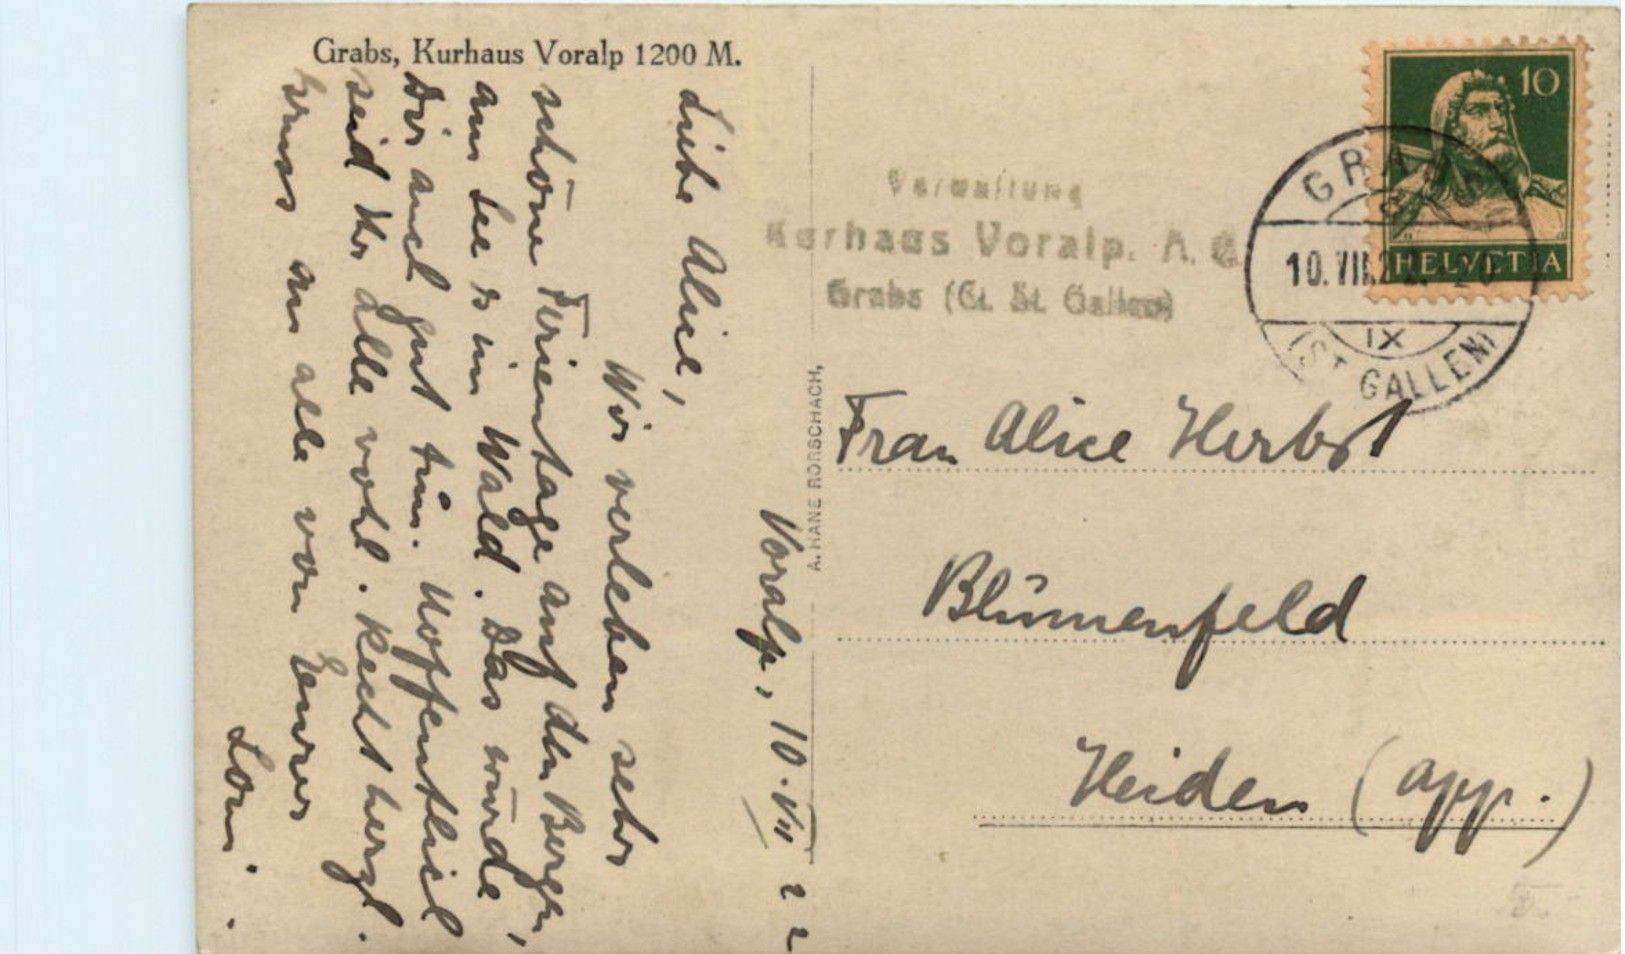 Grabs, Kurhaus Voralp 1200 M.
Voralp, 10. VII 22
Liebe Alice,
Wir verleben sehr
schöne Ferientage auf den Bergen,
am See & im Wald. Das würde
Dir auch gut tun. Hoffentlich
seid Ihr alle wohl. Recht herzl.
Gruss an alle von Eurer
A. HANE RORSCHACH,
Verwaltung
Kurhaus Voralp. A. G.
Grabs (Ct. St. Gallen)
10
HELVETIA
GRABS
10. VII. 22.
IX
(ST. GALLEN)
Frau Alice Herbst
Blumenfeld
Heiden (App.)